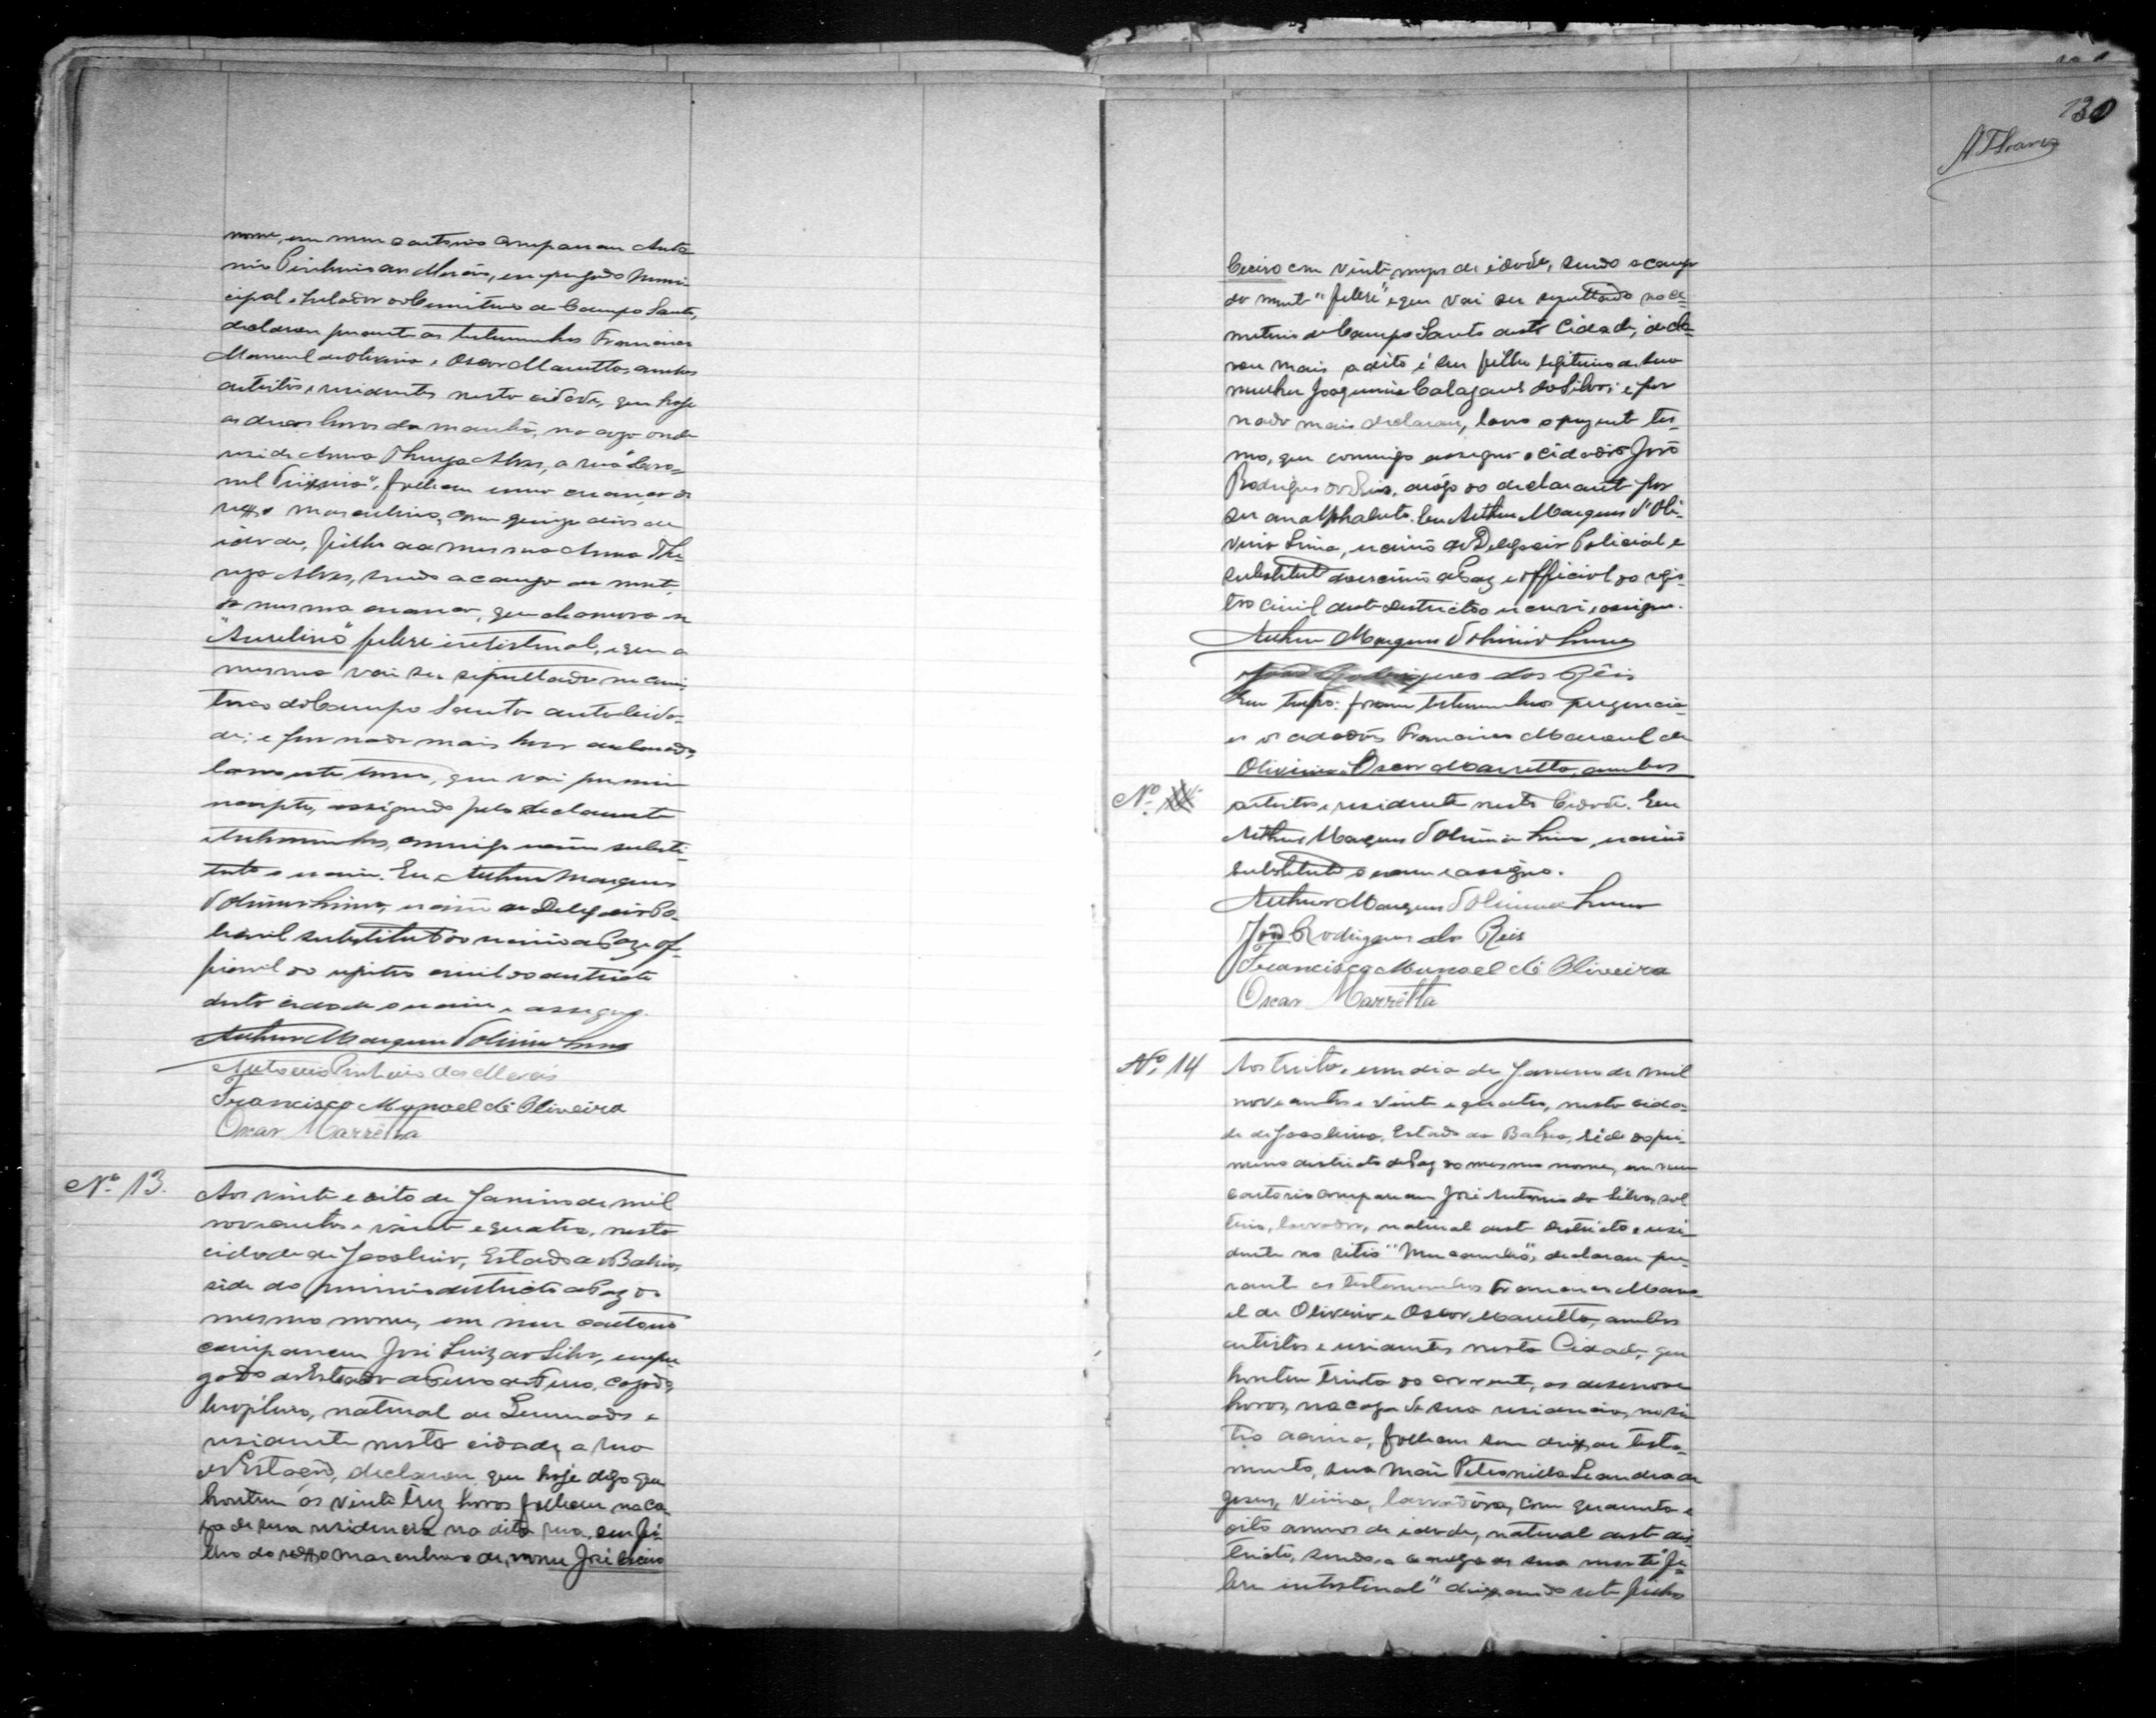 nome, em meu cartorio compareceu Anto
nio Pinheiro de Moraes, empregado muni
cipal e zelador do Cemiterio do Campo Santo,
declarou perante as testemunhas Francisco
Manoel de Oliveira e Oscar Marretta, ambos
artistas e residentes nesta cidade, que hoje
as duas horas da manhã, na casa onde
reside Anna Thereza Alves, a rua "Coro-
nel", falleceu uma creança do
sexo masculino, com quinze dias de
idade, filho da mesma Anna The
reza Alves, sendo a causa da morte,
da mesma creança, que chamava-se
"Aurelino" febre intestinal, e que a
mesma vai ser sepultado no cemi
terio do Campo Santo desta cida-
de; e por nada mais haver declarado,
lavro este termo, que vai por mim
escripto, assignado pelo declarante
e testemunhas, commigo escrivão substi-
tuto o escrevi. Eu Arthur Marques
d'Oliveira Lima, escrivão da Delegacia Po-
licial substituto do escrivão de Paz e of-
ficial do registro civil do districto
desta cidade o escrevi e assigno.
Arthur Marques d'Oliveira Lima
Antonio Pinheiro de Moraes
Francisco Manoel de Oliveira
Oscar Marretta
Nº 13.
Aos vinte e oito de Janeiro de mil
novecentos e vinte e quatro, nesta
cidade de Jacobina, Estado da Bahia,
séde do primeiro districto de Paz do
mesmo nome, em meu cartorio
compareceu José Luiz da Silva, empre
gado da Estrada de Ferro, casado,
natural de e
residente nesta cidade, a rua
da Estação, declarou que hoje digo que
hontem as vinte trez horas falleceu na ca
za de sua residencia na dita rua, seu fi-
lho do sexo masculino de nome José Cicero
130
Cicero com vinte mezes de idade, sendo a causa
da morte "febre" e que vai ser sepultado no ce-
miterio do Campo Santo desta Cidade, decla
rou mais, o dito é seu filho legitimo de sua
mulher Joaquina Calazans da Silva; e por
nada mais declarar, lavro o prezente ter-
mo, que commigo assigna o cidadão João
Rodrigues dos Reis, arôgo do declarante por
ser analphabeto. Eu Arthur Marques d'Oli-
veira Lima, escrivão da Delegacia Policial e
substituto do escrivão de Paz e official do regis-
tro civil deste districto o escrevi e assigno.
Arthur Marques d'Oliveira Lima
João Rodrigues dos Reis
Em tempo: foram testemunhas prezencia-
es os cidadãos Francisco Manoel de
Oliveira e Oscar Marretta, ambos
Nº
artistas e residentes nesta Cidade. Eu
Arthur Marques d'Oliveira Lima, escrivão
substituto o escrevi e assigno.
Arthur Marques d'Oliveira Lima
João Rodrigues dos Reis
Francisco Manoel de Oliveira
Oscar Marretta
Nº 14
Aos trinta e um dia de Janeiro de mil
novecentos e vinte e quatro, nesta cida-
de de Jacobina, Estado da Bahia, séde do pri-
meiro districto de Paz do mesmo nome, em meu
cartorio compareceu José Antonio da Silva, sol
teiro, lavrador, natural deste districto e resi-
dente no sitio, declarou pe-
rante as testemunhas Francisco Mano-
el de Oliveira e Oscar Marretta, ambos
artistas e residentes nesta Cidade, que
hontem trinta do corrente, as desenove
horas, na caza de sua residencia, no si
tio acima, falleceu sem deixar testa-
mento, sua mãe Petronilla Leandra de
Jesus, viuva, lavradôra, com quarenta e
oito annos de idade, natural deste dis
tricto, sendo a causa de sua morte "fe-
bre intestinal" deixando sete filhos